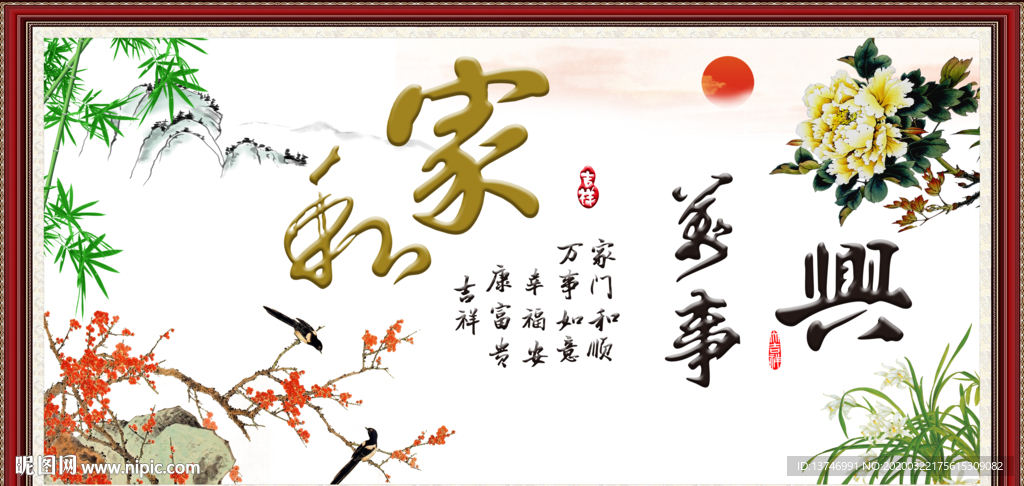 家
和
萬
事
興
吉祥
家门和顺
万事如意
幸福安
康富贵
吉祥
昵图网 www.nipic.com
ID:13746991 NO:20200322175615309082